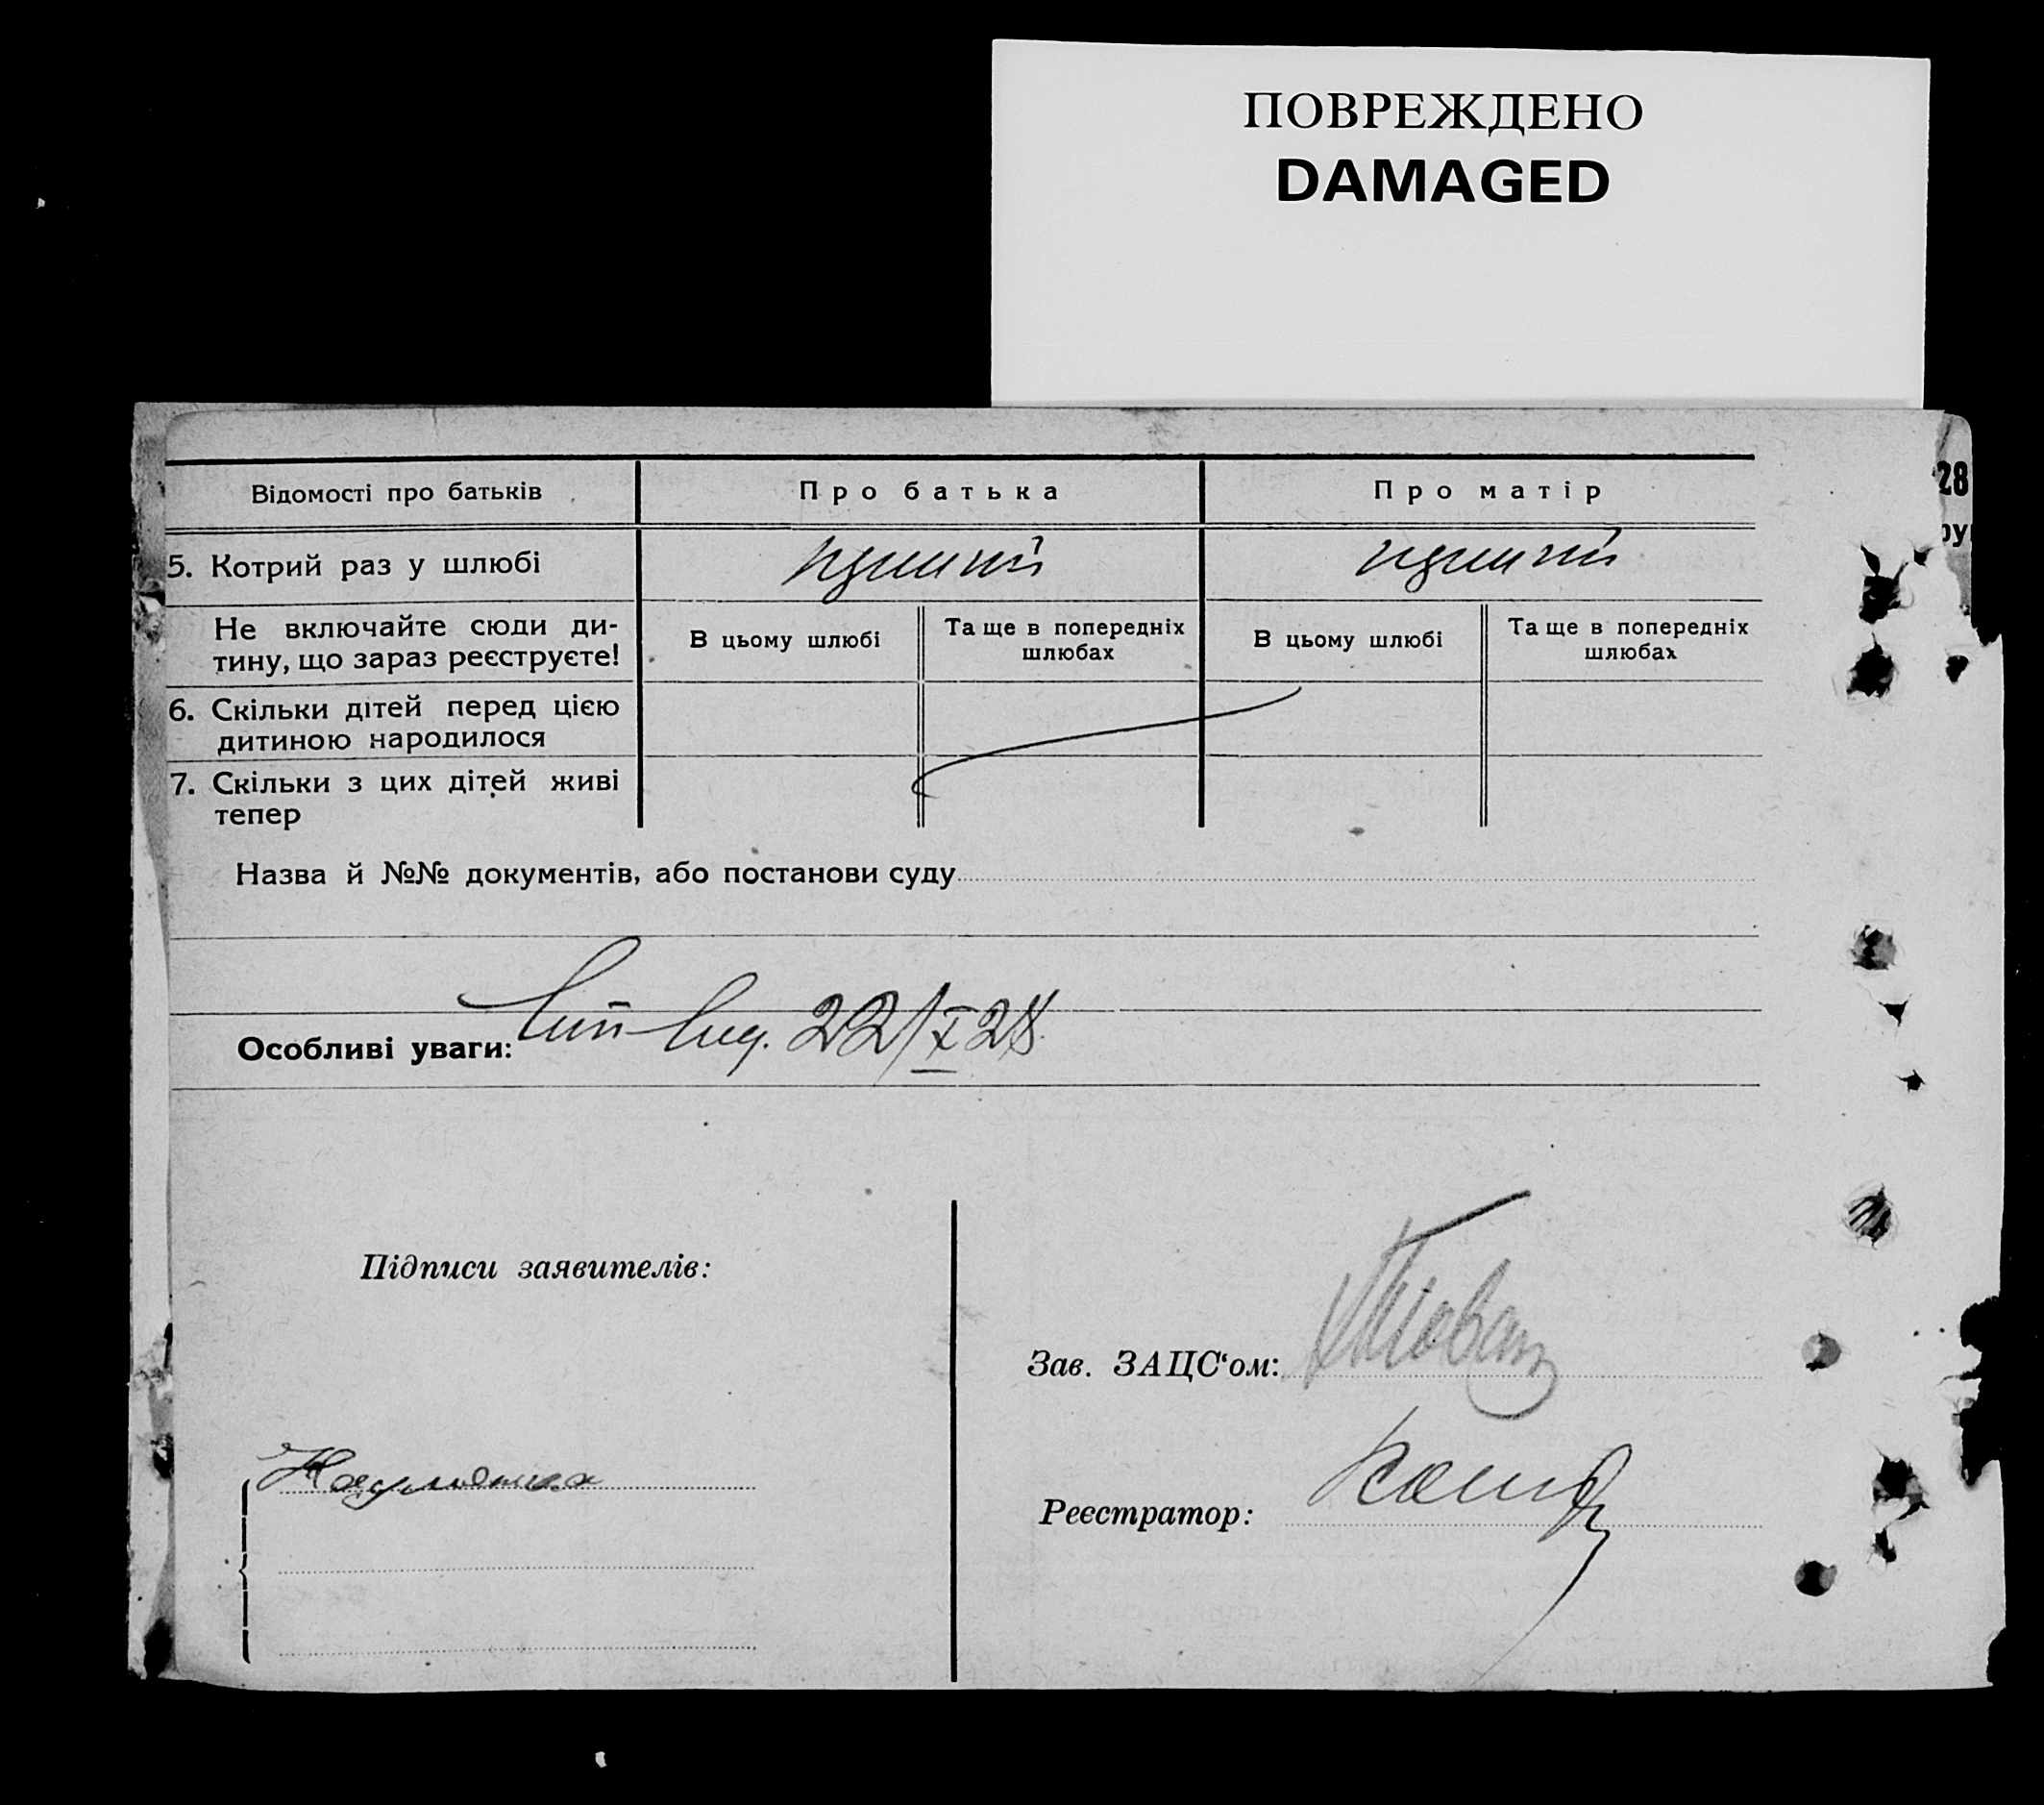 ПОВРЕЖДЕНО
DAMAGED
28
ру
Відомості про батьків
Про батька
Про матір
5. Котрий раз у шлюбі
Не включайте сюди ди-
тину, що зараз реєструєте!
В цьому шлюбі
Та ще в попередніх
шлюбах
В цьому шлюбі
Та ще в попередніх
шлюбах
6. Скільки дітей перед цією
дитиною народилося
7. Скільки з цих дітей живі
тепер
Назва й №№ документів, або постанови суду
Особливі уваги: 22/X 28
Підписи заявителів:
Зав. ЗАЦС'ом:
Реєстратор: